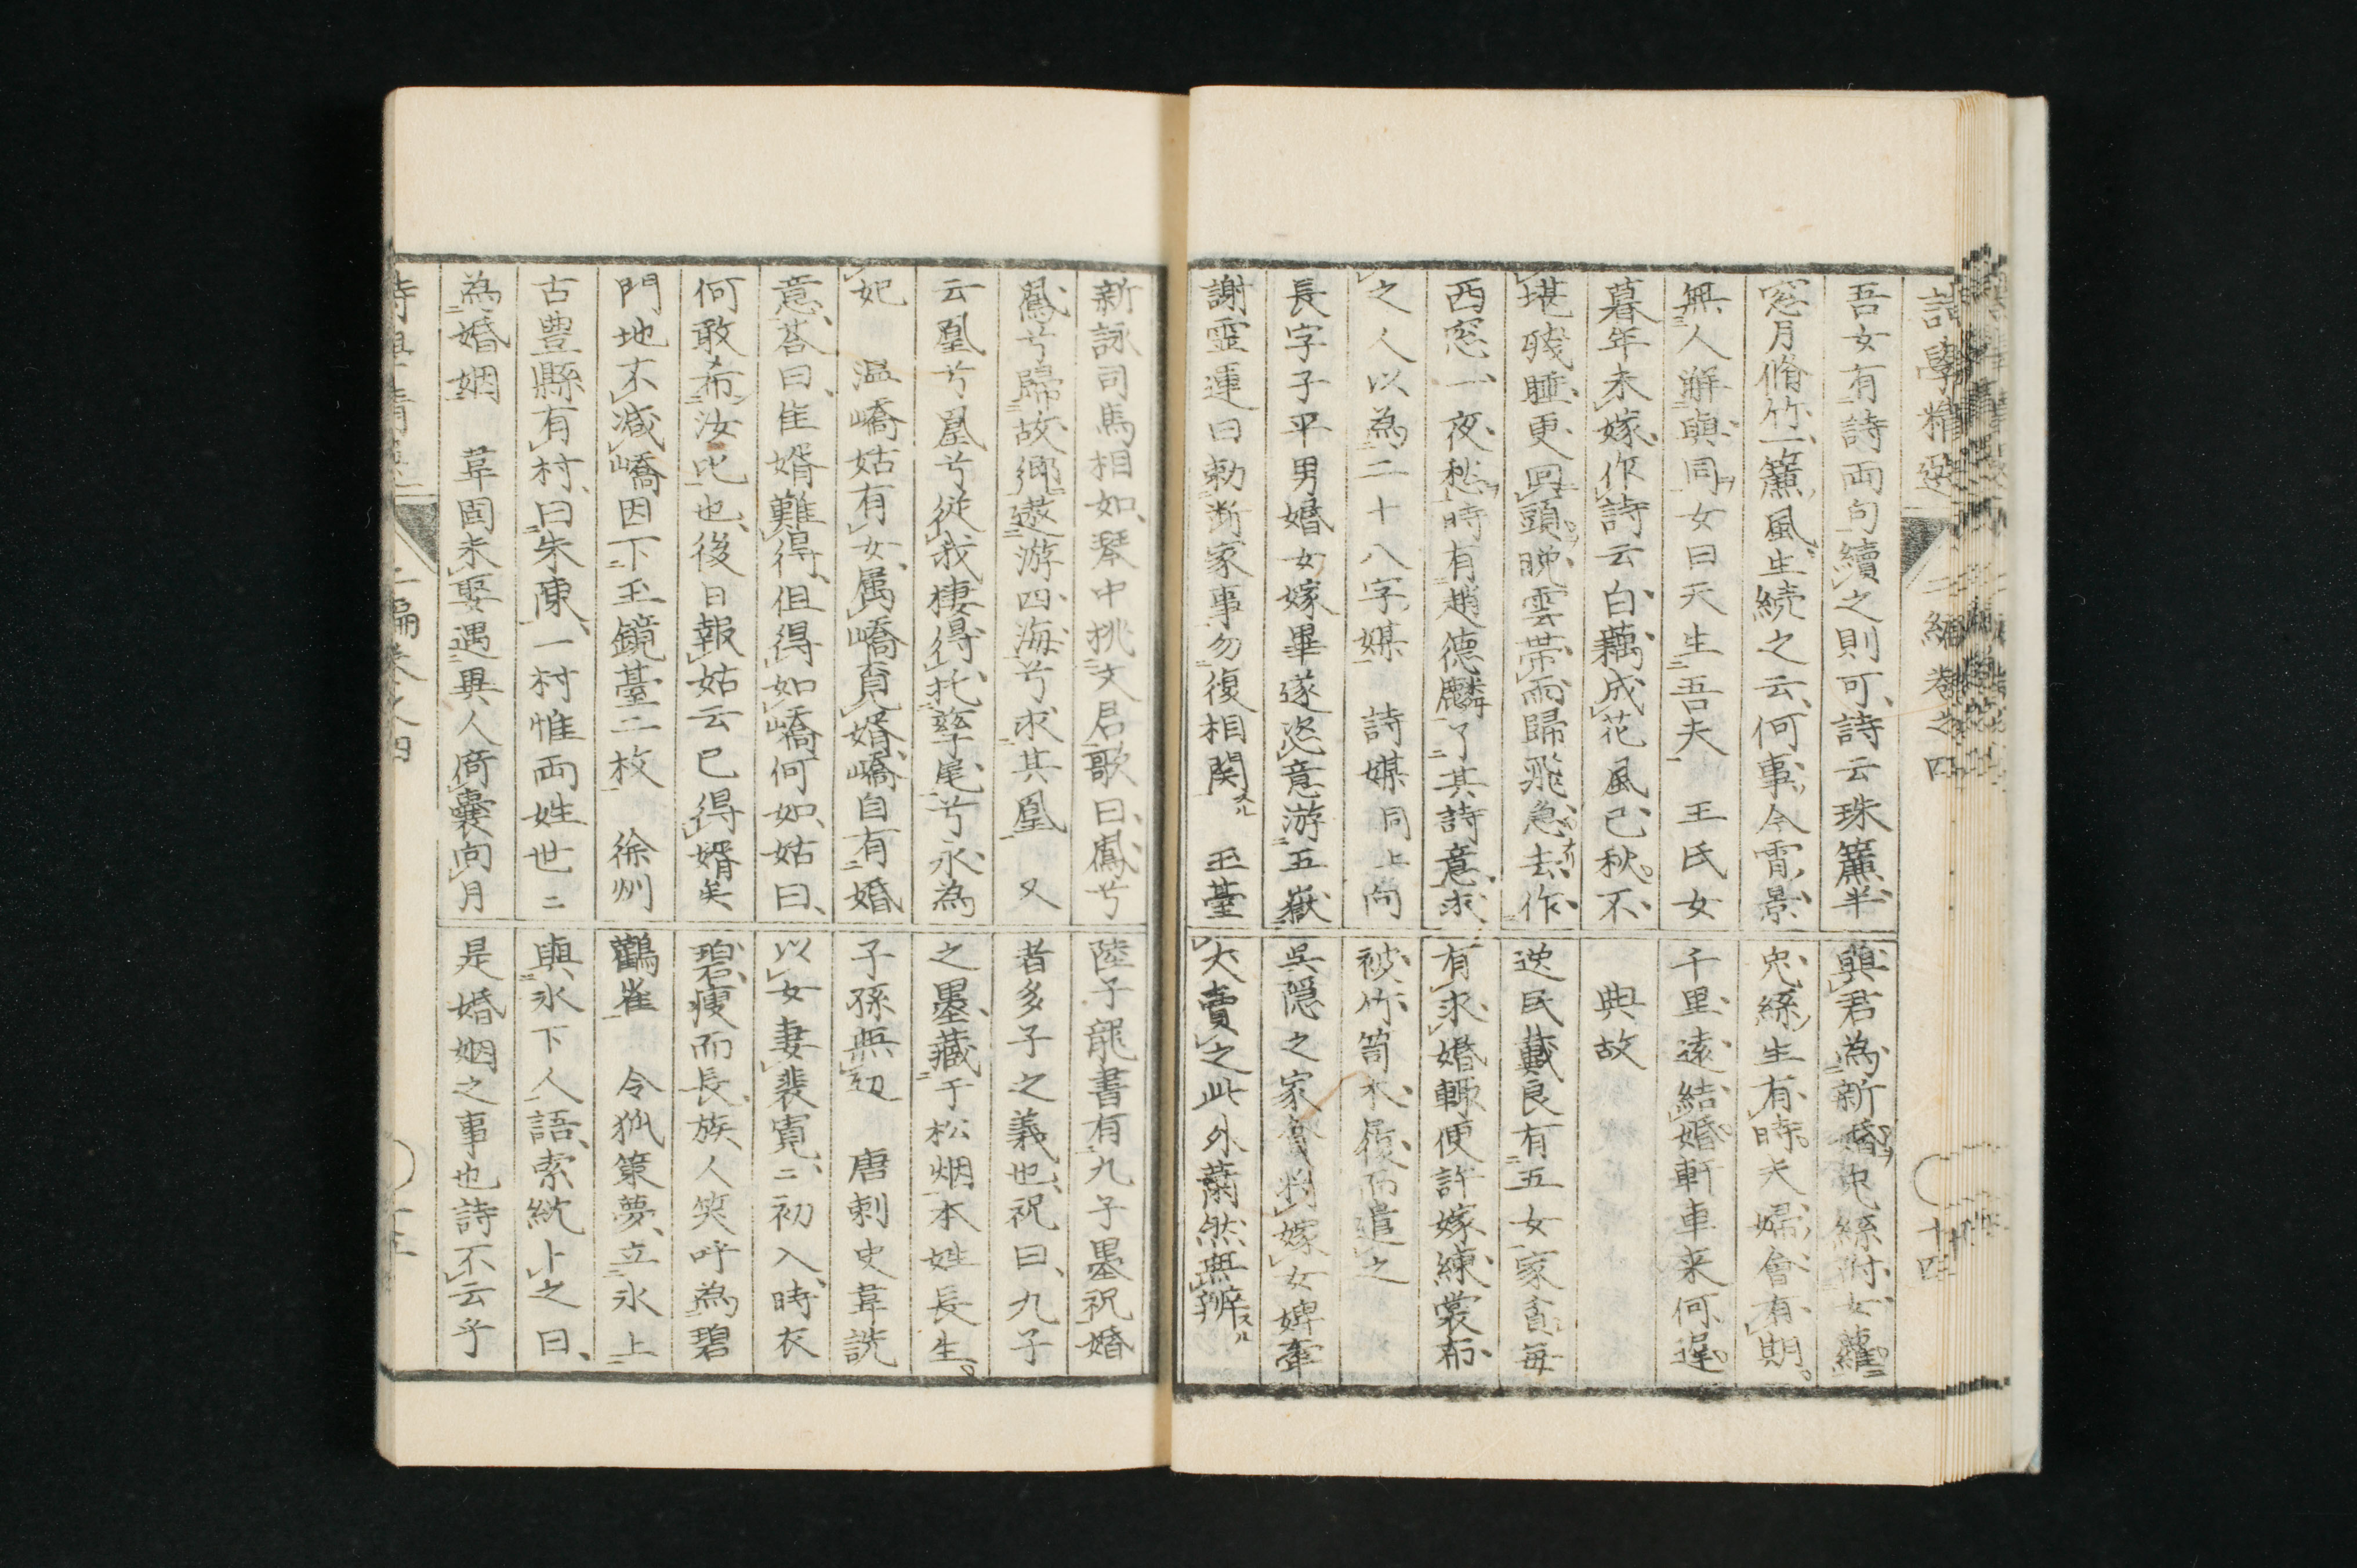 詩學精選 二編巻之四 十四
吾女有詩両句續之則可詩云珠簾半
窓月脩竹一簾風生続之云何事今霄景
無人觧與同女曰天生吾夫 王氏女
暮年未嫁作詩云白藕成花風已秋不
堪残睡更回頭晩雲帯雨歸飛急去作
西窓一夜愁時有趙德麟了其詩意求
之人以為二十八字媒 詩媒同上向
長字子平男婚女嫁畢遂恣意游五嶽
謝霊運曰勅断家事勿復相関スル 玉臺
與君為新婚兎絲附女蘿
兎絲生有時夫婦會有期
千里遠結婚軒車来何遅
典故
逸民戴良有五女家貧毎
有求婚輙便許嫁練裳布
被竹笥木履而遣之
呉隠之家貧将嫁女婢牽
犬賣之此外蕭然無辨スル
新詠司馬相如琴中挑文君歌曰鳳兮
鳳兮歸故郷遨游四海兮求其凰 又
云凰兮凰兮従我棲得托孳尾兮永為
妃 温嶠姑有女属嶠覔婿嶠自有婚
意荅曰隹婿難得但得如嶠何如姑曰
何敢希汝比也後日報姑云已得婿矣
門地不减嶠因下玉鏡臺二枚 徐州
古豊縣有村曰朱陳一村惟両姓世ニ
為婚姻 韋固未娶遇異人倚囊向月
陸子龍書有九子墨祝婚
者多子之義也祝曰九子
之墨藏于松烟本姓長生
子孫無边 唐刺史韋詵
以女妻裴寛ニ初入時衣
碧瘦而長族人笑呼為碧
鸛雀 令狐策夢立氷上
與氷下人語索紞卜之曰
是婚姻之事也詩不云乎
二編巻之四